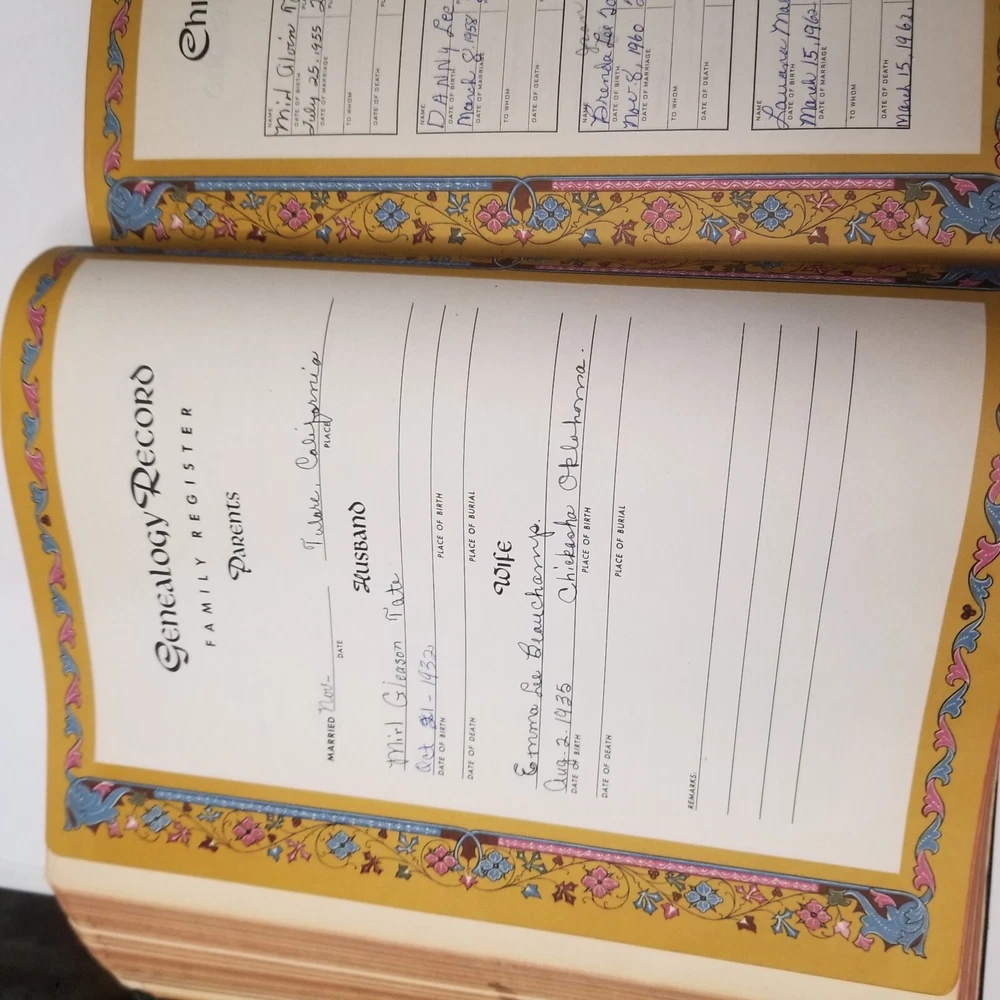 Genealogy Record
FAMILY REGISTER
Parents
MARRIED Nov- Tulare, California
DATE PLACE
Husband
Mirl Gleason Tate
Oct 21-1932
DATE OF BIRTH PLACE OF BIRTH
DATE OF DEATH PLACE OF BURIAL
Wife
Emma Lee Beauchamp.
Aug-2-1935 Chickasha Oklahoma.
DATE OF BIRTH PLACE OF BIRTH
DATE OF DEATH PLACE OF BURIAL
REMARKS:
Chi
NAME
Mirl Alvin
DATE OF BIRTH
July 25, 1955
DATE OF MARRIAGE
TO WHOM
DATE OF DEATH
NAME
DANNY Lee
DATE OF BIRTH
March 8, 1958
DATE OF MARRIAGE
TO WHOM
DATE OF DEATH
NAME
Brenda Lee
DATE OF BIRTH
Nov. 8, 1960
DATE OF MARRIAGE
TO WHOM
DATE OF DEATH
NAME
Lauana Mae
DATE OF BIRTH
March 15, 1962
DATE OF MARRIAGE
TO WHOM
DATE OF DEATH
March 15, 1962.